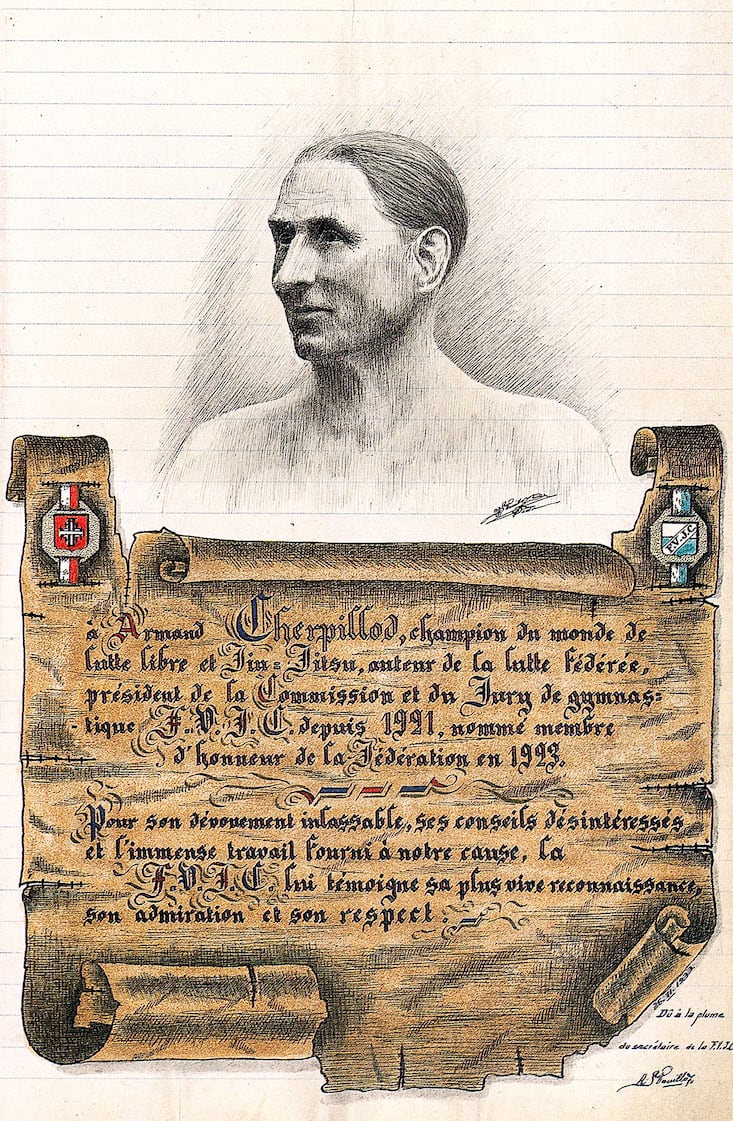 F.V.J.C.
à Armand Cherpillod, champion du monde de
lutte libre et Jiu=Jitsu, auteur de la lutte fédérée,
président de la Commission et du Jury de gymnas=
tique F.V.J.C. depuis 1921, nommé membre
d'honneur de la Fédération en 1923.
Pour son dévouement inlassable, ses conseils désintéressés
et l'immense travail fourni à notre cause, la
F.V.J.C. lui témoigne sa plus vive reconnaissance,
son admiration et son respect.
Dû à la plume
du secrétaire de la F.V.J.C